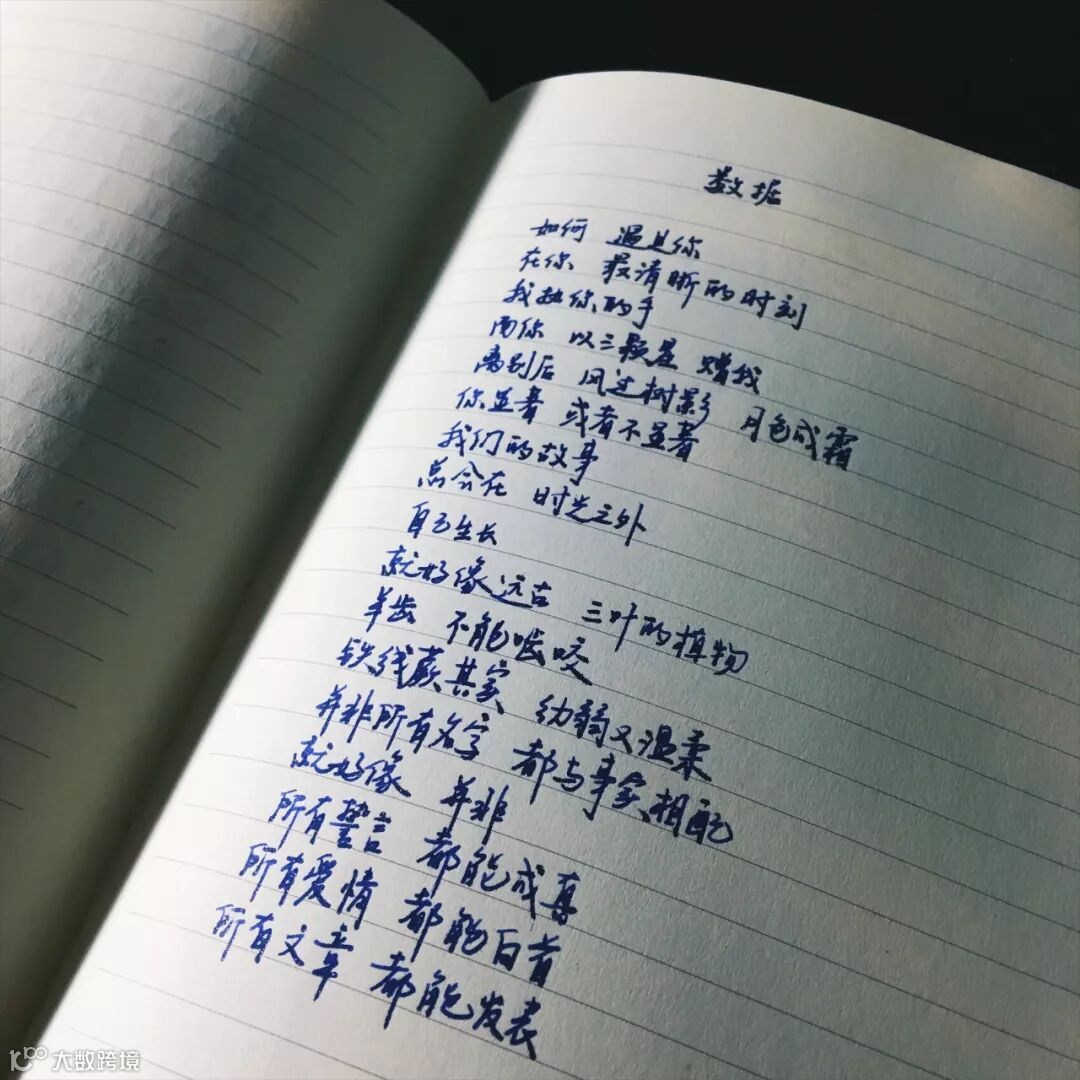 数据
如何 遇见你
在你 最清晰的时刻
我执你的手
而你 以三颗星 赠我
离别后 风过树影 月色成霜
你显著 或者不显著
我们的故事
总会在 时光之外
自己生长
就好像远古 三叶的植物
羊齿 不能啮咬
铁线蕨其实 幼弱又温柔
并非所有名字 都与事实相配
就好像 并非
所有誓言 都能成真
所有爱情 都能白首
所有文章 都能发表
大数跨境